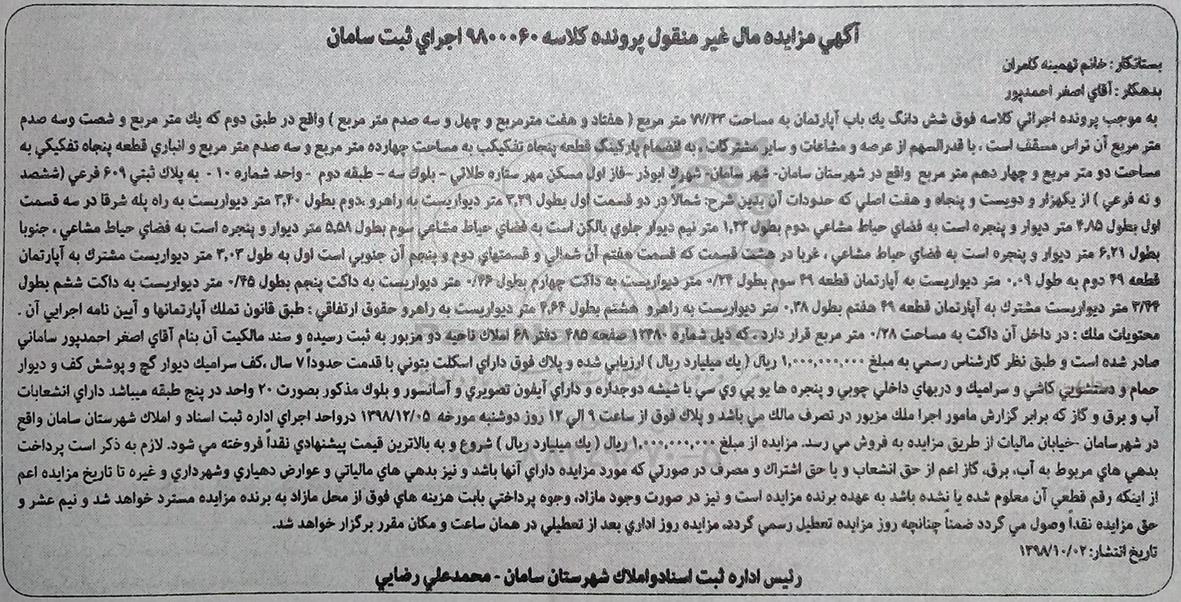 آگهي مزايده مال غير منقول پرونده كلاسه ۹۸۰۰۰۶۰ اجراي ثبت سامان
بستانكار : خانم تهمينه كامران
بدهكار : آقاي اصغر احمدپور
به موجب پرونده اجرائي كلاسه فوق شش دانگ يك باب آپارتمان به مساحت ۷۷/۴۳ متر مربع ( هفتاد و هفت مترمربع و چهل و سه صدم متر مربع ) واقع در طبق دوم كه يك متر مربع و شصت وسه صدم
متر مربع آن تراس مسقف است . با قدرالسهم از عرصه و مشاعات و ساير مشتركات . به انضمام پاركينگ قطعه پنجاه تفكيكب به مساحت چهارده متر مربع و سه صدم متر مربع و انباري قطعه پنجاه تفكيكي به
مساحت دو متر مربع و چهار دهم متر مربع واقع در شهرستان سامان- شهر سامان- شهرك ابوذر -فاز اول مسكن مهر ستاره طلائي - بلوك سه - طبقه دوم - واحد شماره ۱۰ - به پلاك ثبتي ۶۰۹ فرعي (ششصد
و نه فرعي ) از يكهزار و دويست و پنجاه و هفت اصلي كه حدودات آن بدين شرح: شمالاً در دو قسمت اول بطول ۳,۲۹ متر ديواريست به راهرو .دوم بطول ۳,۴۰ متر ديواريست به راه پله شرقا در سه قسمت
اول بطول ۴,۸۵ متر ديوار و پنجره است به فضاي حياط مشاعي ،دوم بطول ۱,۳۳ متر نيم ديوار جلوي بالكن است به فضاي حياط مشاعي سوم بطول ۵,۵۸ متر ديوار و پنجره است به فضاي حياط مشاعي ، جنوبا
بطول ۶,۲۱ متر ديوار و پنجره است به فضاي حياط مشاعي ، غربا در هشت قسمت كه قسمت هفتم آن شمالي و قسمتهاي دوم و پنجم آن جنوبي است اول به طول ۳,۰۳ متر ديواريست مشترك به آپارتمان
قطعه ۴۹ دوم به طول ۰,۰۹ متر ديواريست به آپارتمان قطعه ۴۹ سوم بطول ۰/۲۴ متر ديواريست به داكت چهارم بطول ۰/۴۶ متر ديواريست به داكت پنجم بطول ۰/۴۵ متر ديواريست به داكت ششم بطول
۳/۴۴ متر ديواريست مشترك به آپارتمان قطعه ۴۹ هفتم بطول ۰,۳۸ متر ديواريست به راهرو هشتم بطول ۴,۶۴ متر ديواريست به راهرو حقوق ارتفاقي : طبق قانون تملك آپارتمانها و آيين نامه اجرايي آن .
محتويات ملك : در داخل آن داكت به مساحت ۰/۲۸ متر مربع قرار دارد . كه ذيل شماره ۱۲۳۸۰ صفحه ۴۸۵ دفتر ۶۸ املاك ناحيه دو مزبور به ثبت رسيده و سند مالكيت آن بنام آقاي اصغر احمدپور ساماني
صادر شده است و طبق نظر كارشناس رسمي به مبلغ ۱,۰۰۰,۰۰۰,۰۰۰ ريال ( يك ميليارد ريال ) ارزيابي شده و پلاك فوق داراي اسكلت بتوني با قدمت حدوداً ۷ سال ،كف سراميك ديوار گچ و پوشش كف و ديوار
حمام و دستشويي كاشي و سراميك و دربهاي داخلي چوبي و پنجره ها يو پي وي سي با شيشه دوجداره و داراي آيفون تصويري و آسانسور و بلوك مذكور بصورت ۲۰ واحد در پنج طبقه ميباشد داراي انشعابات
آب و برق و گاز كه برابر گزارش مامور اجرا ملك مزبور در تصرف مالك مي باشد و پلاك فوق از ساعت ۹ الي ۱۲ روز دوشنبه مورخه ۱۳۹۸/۱۲/۰۵ درواحد اجراي اداره ثبت اسناد و املاك شهرستان سامان واقع
در شهرسامان -خيابان ماليات از طريق مزايده به فروش مي رسد. مزايده از مبلغ ۱,۰۰۰,۰۰۰,۰۰۰ ريال ( يك ميليارد ريال ) شروع و به بالاترين قيمت پيشنهادي نقداً فروخته مي شود. لازم به ذكر است پرداخت
بدهي هاي مربوط به آب، برق، گاز اعم از حق انشعاب و يا حق اشتراك و مصرف در صورتي كه مورد مزايده داراي آنها باشد و نيز بدهي هاي مالياتي و عوارض دهياري وشهرداري و غيره تا تاريخ مزايده اعم
از اينكه رقم قطعي آن معلوم شده يا نشده باشد به عهده برنده مزايده است و نيز در صورت وجود مازاد، وجوه پرداختي بابت هزينه هاي فوق از محل مازاد به برنده مزايده مسترد خواهد شد و نيم عشر و
حق مزايده نقداً وصول مي گردد ضمناً چنانچه روز مزايده تعطيل رسمي گردد، مزايده روز اداري بعد از تعطيلي در همان ساعت و مكان مقرر برگزار خواهد شد.
تاريخ انتشار: ۱۳۹۸/۱۰/۰۲
رئيس اداره ثبت اسنادواملاك شهرستان سامان - محمدعلي رضايي